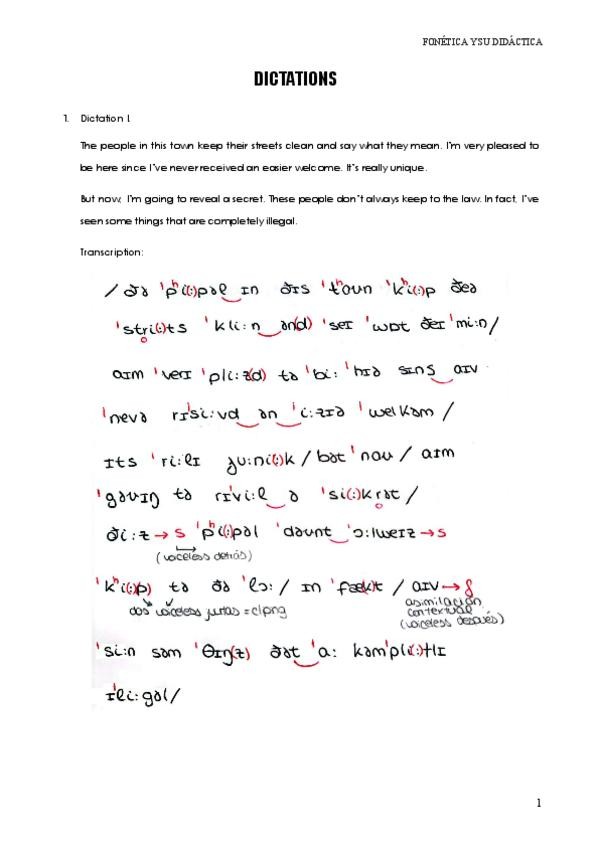 FONÉTICA Y SU DIDÁCTICA
DICTATIONS
1. Dictation 1.
The people in this town keep their streets clean and say what they mean. I'm very pleased to
be here since I've never received an easier welcome. It's really unique.
But now, I'm going to reveal a secret. These people don't always keep to the law. In fact, I've
seen some things that are completely illegal.
Transcription:
/ ðə ˈpʰi(:)pəl ɪn ðɪs ˈtʰaʊn ˈkʰi(:)p ðeə
ˈstri(:)ts ˈkli:n ən(d) ˈseɪ ˈwɒt ðeɪ ˈmi:n/
aɪm ˈverɪ ˈpli:z(d) tə ˈbi: ˈhɪə sɪns aɪv
ˈnevə rɪˈsi:vd ən ˈi:zɪə ˈwelkəm /
ɪts ˈri:lɪ ju:ˈni(:)k / bət ˈnaʊ / aɪm
ˈgəʊɪŋ tə rɪˈvi:l ə ˈsi(:)krət /
ði:z → s ˈpʰi(:)pəl ˈdəʊnt ˈɔ:lweɪz → s
(voiceless detrás)
ˈkʰi(:)p) tə ðə ˈlɔ: / ɪn ˈfæk)t / aɪv → f
dos voiceless juntas = clipng
asimilación
contextual
(voiceless después)
ˈsi:n səm ˈθɪŋ(z) ðət ˈa: kəmˈpli(:)tlɪ
ɪˈli:gəl /
1